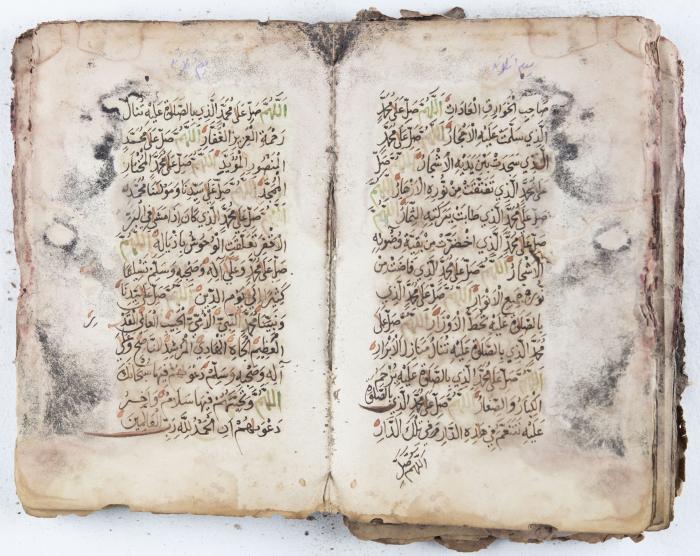 صاحب الخوارق العادات اللهم صل على محمد
الذي سلمت عليه الاحجار اللهم صل على محمد
الذي سجدت بين يديه الاشجار اللهم صل
على محمد الذي تفتقت من نوره الازهار اللهم
صل على محمد الذي طابت ببركته الثمار اللهم
صل على محمد الذي اخضرت من بقية وضوئه
الاشجار اللهم صل على محمد الذي فاضت من
نوره جميع الانوار اللهم صل على محمد الذي
بالصلوة عليه تحط الاوزار اللهم صل على
محمد الذي بالصلوة عليه تنال منازل الابرار
اللهم صل على محمد الذي بالصلوة عليه يرحم
الكبار والصغار اللهم صل على محمد الذي بالصلوة
عليه نتنعم في هذه الدار وفي تلك الدار
اللهم صل
اللهم صل على محمد الذي بالصلوة عليه تنال
رحمة العزيز الغفار اللهم صل على محمد
المنصور المؤيد اللهم صل على محمد المختار
الممجد اللهم صل على سيدنا ومولانا محمد
اللهم صل على محمد الذي كان اذا مشى في البر
الاقفر تعلقت الوحوش باذياله اللهم
صل على محمد وعلى اله وصحبه وسلم تسليما
كثيرا الى يوم الدين اللهم صل على سيدنا
ونبينا محمد النبي الامي الحبيب العالي القدر
العظيم الجاه الهادي المرشد وعلى
اله وصحبه وسلم دعويهم فيها سبحانك
اللهم وتحيتهم فيها سلام واخر
دعويهم ان الحمد لله رب العالمين